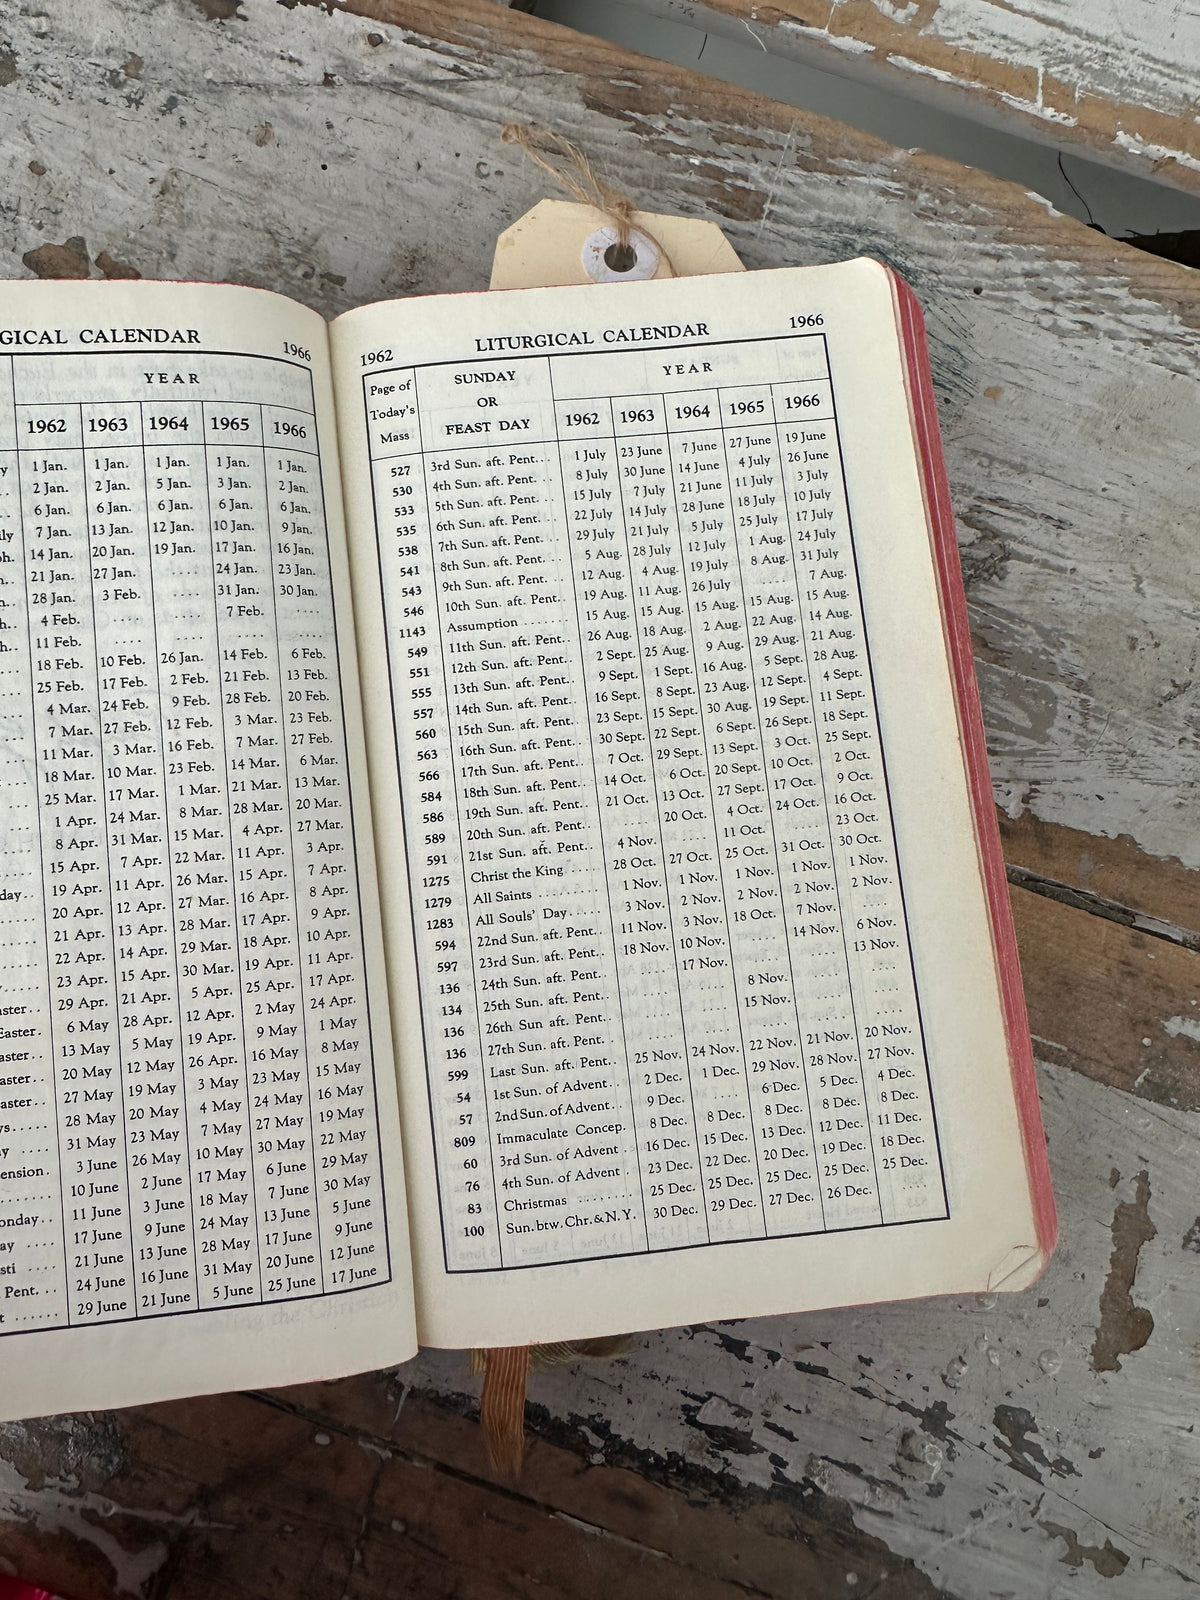 GICAL CALENDAR 1966
YEAR
1962 1963 1964 1965 1966
y 1 Jan. 1 Jan. 1 Jan. 1 Jan. 1 Jan.
.. 2 Jan. 2 Jan. 5 Jan. 3 Jan. 2 Jan.
6 Jan. 6 Jan. 6 Jan. 6 Jan. 6 Jan.
ily 7 Jan. 13 Jan. 12 Jan. 10 Jan. 9 Jan.
h. 14 Jan. 20 Jan. 19 Jan. 17 Jan. 16 Jan.
h.. 21 Jan. 27 Jan. .... 24 Jan. 23 Jan.
h.. 28 Jan. 3 Feb. .... 31 Jan. 30 Jan.
h.. 4 Feb. .... .... 7 Feb. ....
h.. 11 Feb. .... .... .... ....
... 18 Feb. 10 Feb. 26 Jan. 14 Feb. 6 Feb.
... 25 Feb. 17 Feb. 2 Feb. 21 Feb. 13 Feb.
... 4 Mar. 24 Feb. 9 Feb. 28 Feb. 20 Feb.
... 7 Mar. 27 Feb. 12 Feb. 3 Mar. 23 Feb.
... 11 Mar. 3 Mar. 16 Feb. 7 Mar. 27 Feb.
... 18 Mar. 10 Mar. 23 Feb. 14 Mar. 6 Mar.
... 25 Mar. 17 Mar. 1 Mar. 21 Mar. 13 Mar.
... 1 Apr. 24 Mar. 8 Mar. 28 Mar. 20 Mar.
... 8 Apr. 31 Mar. 15 Mar. 4 Apr. 27 Mar.
... 15 Apr. 7 Apr. 22 Mar. 11 Apr. 3 Apr.
day.. 19 Apr. 11 Apr. 26 Mar. 15 Apr. 7 Apr.
.... 20 Apr. 12 Apr. 27 Mar. 16 Apr. 8 Apr.
.... 21 Apr. 13 Apr. 28 Mar. 17 Apr. 9 Apr.
..... 22 Apr. 14 Apr. 29 Mar. 18 Apr. 10 Apr.
..... 23 Apr. 15 Apr. 30 Mar. 19 Apr. 11 Apr.
aster.. 29 Apr. 21 Apr. 5 Apr. 25 Apr. 17 Apr.
Easter. 6 May 28 Apr. 12 Apr. 2 May 24 Apr.
aster.. 13 May 5 May 19 Apr. 9 May 1 May
aster.. 20 May 12 May 26 Apr. 16 May 8 May
aster.. 27 May 19 May 3 May 23 May 15 May
ys..... 28 May 20 May 4 May 24 May 16 May
y .... 31 May 23 May 7 May 27 May 19 May
ension. 3 June 26 May 10 May 30 May 22 May
........ 10 June 2 June 17 May 6 June 29 May
onday.. 11 June 3 June 18 May 7 June 30 May
ay .... 17 June 9 June 24 May 13 June 5 June
sti .... 21 June 13 June 28 May 17 June 9 June
Pent. .. 24 June 16 June 31 May 20 June 12 June
t ...... 29 June 21 June 5 June 25 June 17 June
1962 LITURGICAL CALENDAR 1966
Page of Today's Mass SUNDAY OR FEAST DAY YEAR
1962 1963 1964 1965 1966
527 3rd Sun. aft. Pent... 1 July 23 June 7 June 27 June 19 June
530 4th Sun. aft. Pent. .. 8 July 30 June 14 June 4 July 26 June
533 5th Sun. aft. Pent. .. 15 July 7 July 21 June 11 July 3 July
535 6th Sun. aft. Pent. .. 22 July 14 July 28 June 18 July 10 July
538 7th Sun. aft. Pent. .. 29 July 21 July 5 July 25 July 17 July
541 8th Sun. aft. Pent. .. 5 Aug. 28 July 12 July 1 Aug. 24 July
543 9th Sun. aft. Pent. .. 12 Aug. 4 Aug. 19 July 8 Aug. 31 July
546 10th Sun. aft. Pent.. 19 Aug. 11 Aug. 26 July .... 7 Aug.
1143 Assumption ........ 15 Aug. 15 Aug. 15 Aug. 15 Aug. 15 Aug.
549 11th Sun. aft. Pent.. 26 Aug. 18 Aug. 2 Aug. 22 Aug. 14 Aug.
551 12th Sun. aft. Pent.. 2 Sept. 25 Aug. 9 Aug. 29 Aug. 21 Aug.
555 13th Sun. aft. Pent.. 9 Sept. 1 Sept. 16 Aug. 5 Sept. 28 Aug.
557 14th Sun. aft. Pent.. 16 Sept. 8 Sept. 23 Aug. 12 Sept. 4 Sept.
560 15th Sun. aft. Pent.. 23 Sept. 15 Sept. 30 Aug. 19 Sept. 11 Sept.
563 16th Sun. aft. Pent.. 30 Sept. 22 Sept. 6 Sept. 26 Sept. 18 Sept.
566 17th Sun. aft. Pent.. 7 Oct. 29 Sept. 13 Sept. 3 Oct. 25 Sept.
584 18th Sun. aft. Pent.. 14 Oct. 6 Oct. 20 Sept. 10 Oct. 2 Oct.
586 19th Sun. aft. Pent.. 21 Oct. 13 Oct. 27 Sept. 17 Oct. 9 Oct.
589 20th Sun. aft. Pent.. .... 20 Oct. 4 Oct. 24 Oct. 16 Oct.
591 21st Sun. aft. Pent.. 4 Nov. .... 11 Oct. .... 23 Oct.
1275 Christ the King .... 28 Oct. 27 Oct. 25 Oct. 31 Oct. 30 Oct.
1279 All Saints ........ 1 Nov. 1 Nov. 1 Nov. 1 Nov. 1 Nov.
1283 All Souls' Day..... 3 Nov. 2 Nov. 2 Nov. 2 Nov. 2 Nov.
594 22nd Sun. aft. Pent.. 11 Nov. 3 Nov. 18 Oct. 7 Nov. ....
597 23rd Sun. aft. Pent.. 18 Nov. 10 Nov. .... 14 Nov. 6 Nov.
136 24th Sun. aft. Pent.. .... 17 Nov. .... .... 13 Nov.
134 25th Sun. aft. Pent.. .... .... 8 Nov. .... ....
136 26th Sun aft. Pent.. .... .... 15 Nov. .... ....
136 27th Sun. aft. Pent.. .... .... .... .... ....
599 Last Sun. aft. Pent.. 25 Nov. 24 Nov. 22 Nov. 21 Nov. 20 Nov.
54 1st Sun. of Advent.. 2 Dec. 1 Dec. 29 Nov. 28 Nov. 27 Nov.
57 2nd Sun. of Advent.. 9 Dec. .... 6 Dec. 5 Dec. 4 Dec.
809 Immaculate Concep. 8 Dec. 8 Dec. 8 Dec. 8 Dec. 8 Dec.
60 3rd Sun. of Advent . 16 Dec. 15 Dec. 13 Dec. 12 Dec. 11 Dec.
76 4th Sun. of Advent . 23 Dec. 22 Dec. 20 Dec. 19 Dec. 18 Dec.
83 Christmas ........ 25 Dec. 25 Dec. 25 Dec. 25 Dec. 25 Dec.
100 Sun. btw. Chr. & N. Y. 30 Dec. 29 Dec. 27 Dec. 26 Dec. ....